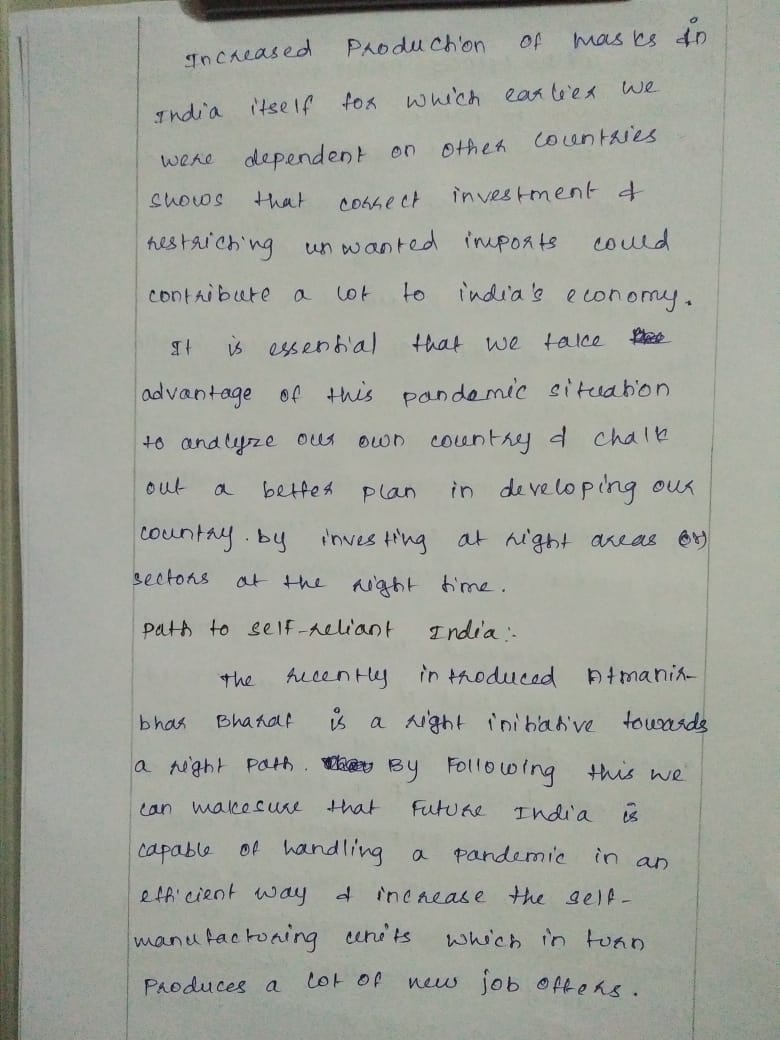 Increased Production of masks in
India itself for which earlier we
were dependent on other countries
shows that correct investment &
restricting unwanted imports could
contribute a lot to india's economy.
It is essential that we take
advantage of this pandemic situation
to analyze our own country & chalk
out a better plan in developing our
country. by investing at right areas (or)
sectors at the right time.
Path to self-reliant India:-
The recently introduced Atmanir-
bhar Bharat is a right initiative towards
a right path. By Following this we
can makesure that Future India is
capable of handling a pandemic in an
efficient way & increase the self-
manufactoring units which in turn
Produces a lot of new job offers.